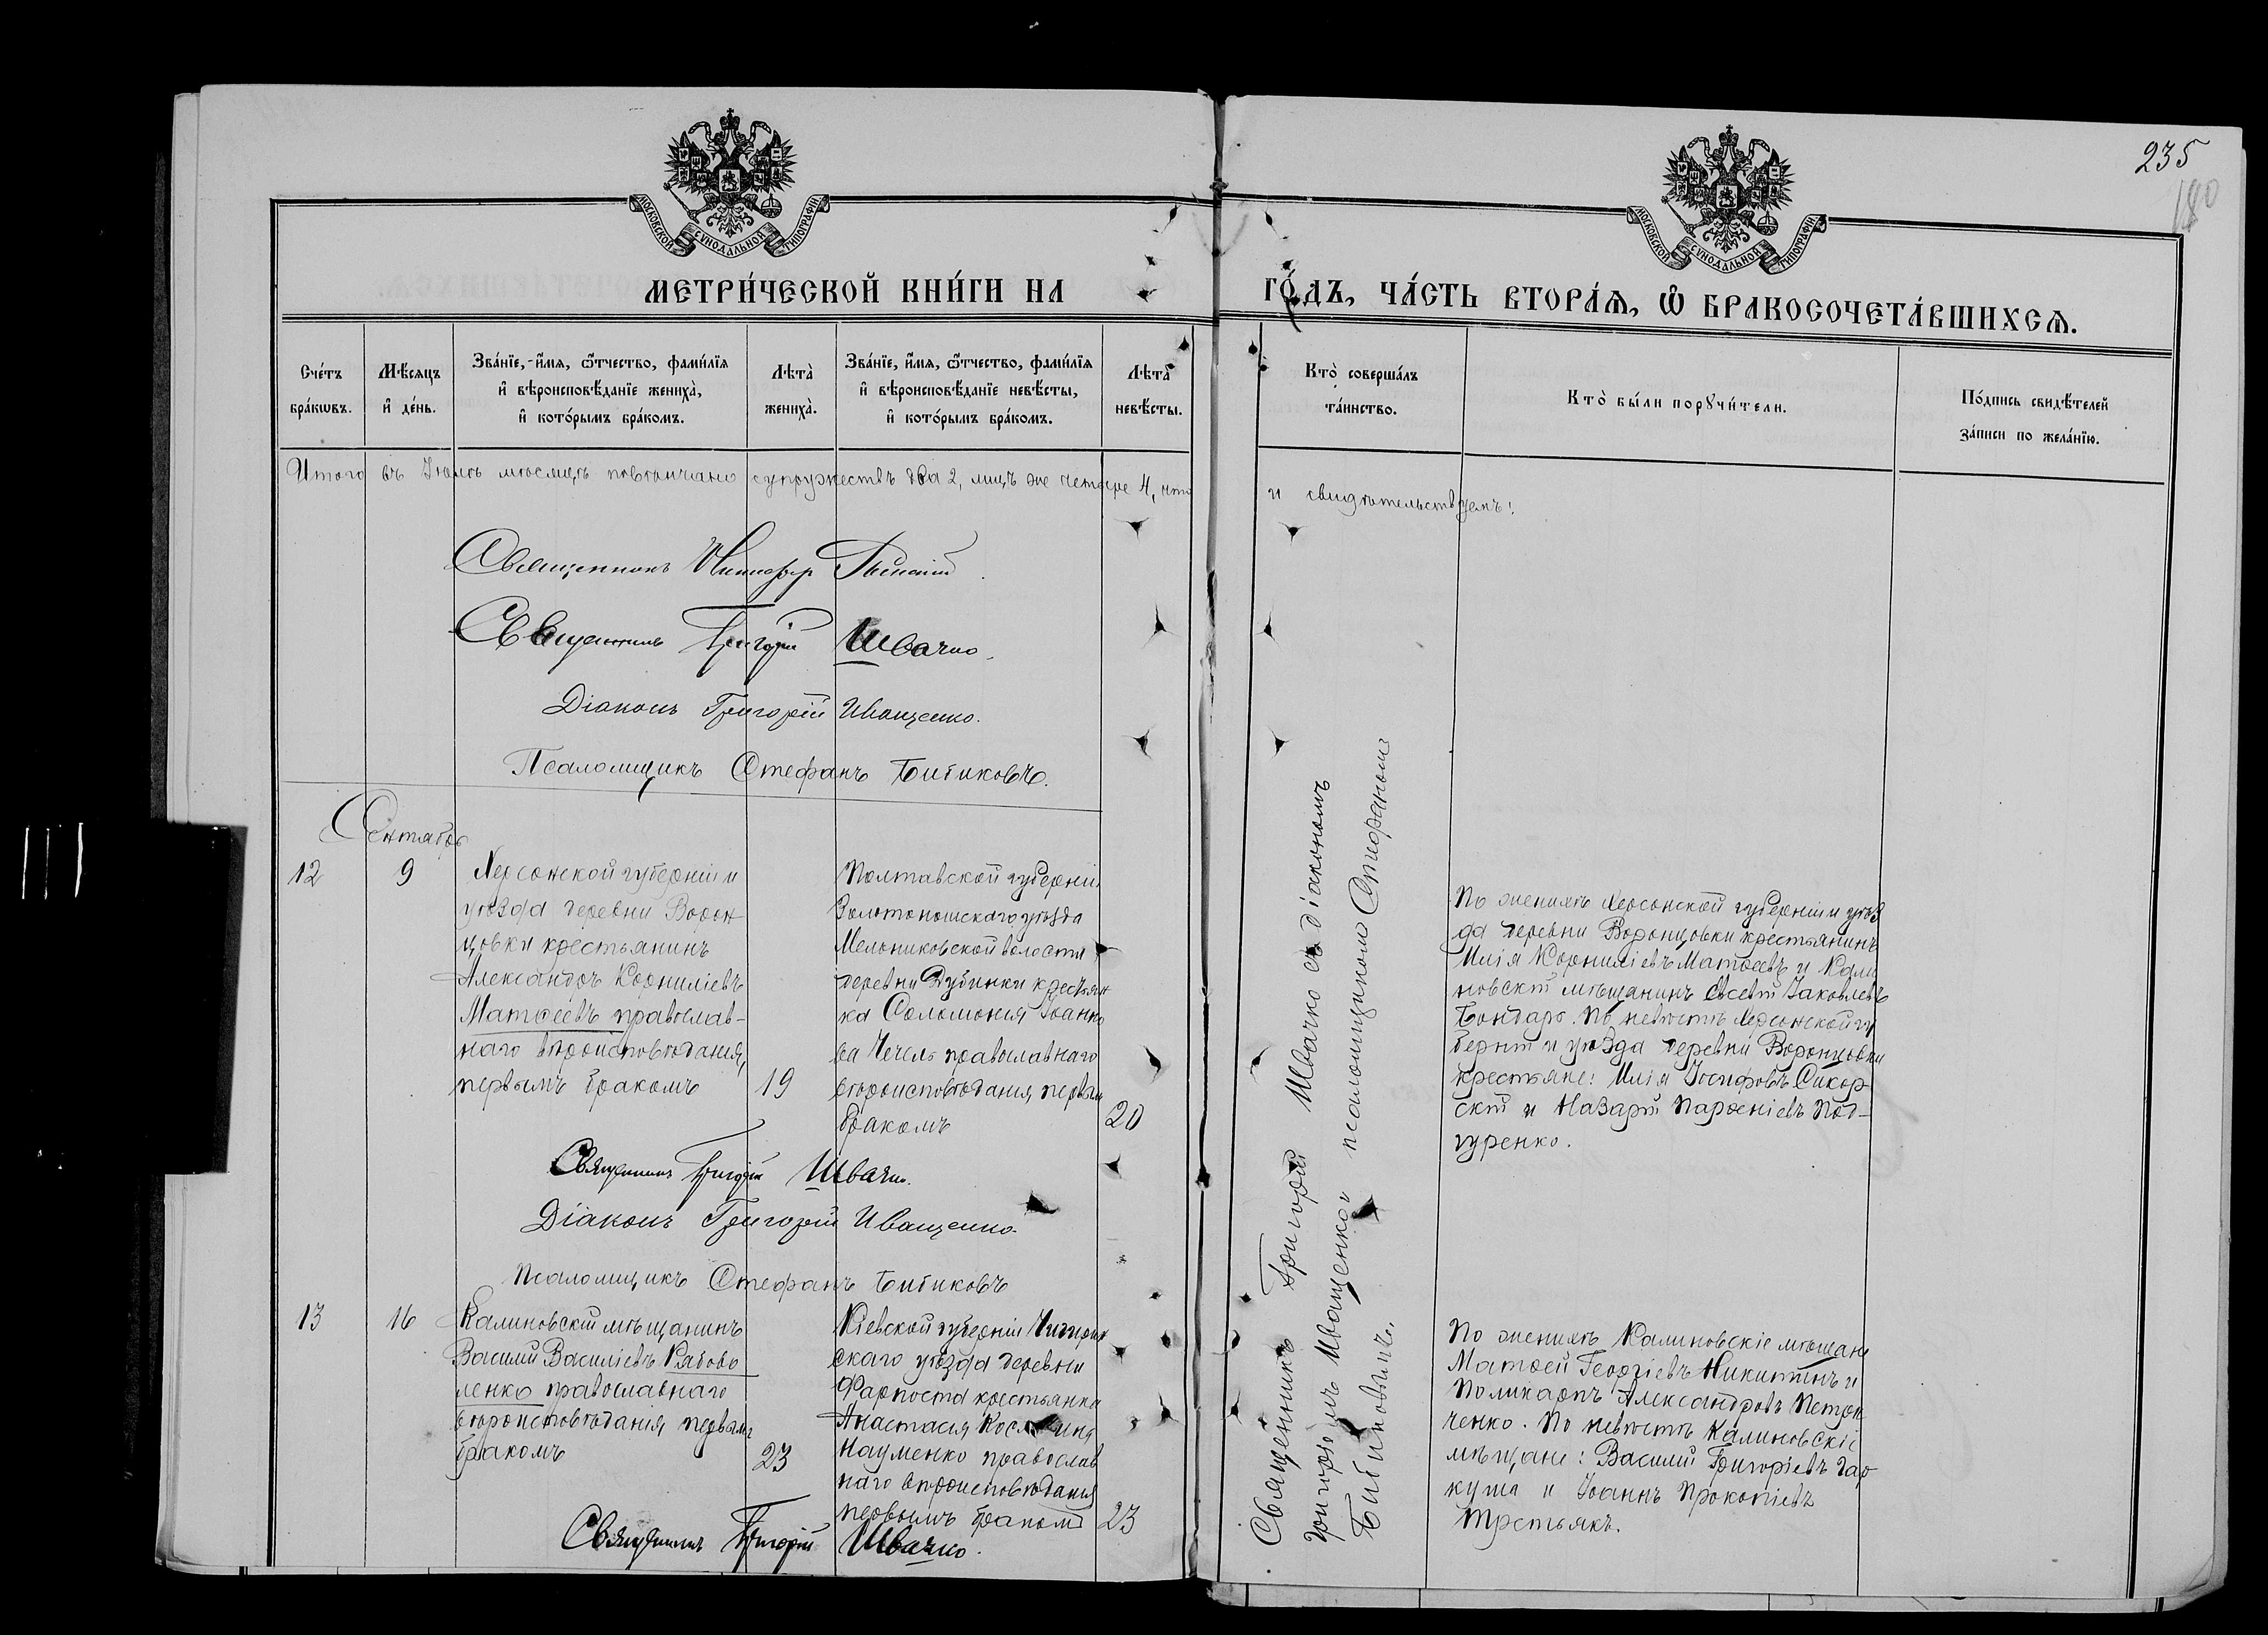 235
180
МОСКОВСКОЙ СУНОДАЛЬНОЙ ТИПОГРАФІИ
МОСКОВСКОЙ СУНОДАЛЬНОЙ ТИПОГРАФІИ
МЕТРИ́ЧЕСКОЙ КНИ́ГИ НА
ГО́ДЪ, ЧА́СТЬ ВТОРА́Ѧ, Ѽ БРАКОСОЧЕТА́ВШИХСѦ.
Сче́тъ
бра́кѡвъ.
Мѣ́сяцъ
и҆ де́нь.
Зва́нїе, и҆́мя, ѻ҆́тчество, фами́лїя
и҆ вѣроисповѣ́данїе жениха̀,
и҆ кото́рымъ бра́комъ.
Лѣта̀
жениха̀.
Зва́нїе, и҆́мя, ѻ҆́тчество, фами́лїя
и҆ вѣроисповѣ́данїе невѣ́сты,
и҆ кото́рымъ бра́комъ.
Лѣта̀
невѣ́сты.
Кто̀ соверша́лъ
та́инство.
Кто̀ бы́ли порꙋчи́тели.
По́дпись свидѣ́телей
за́писи по жела́нїю.
Итого въ Іюлѣ мѣсяцѣ повѣнчано супружествъ два 2, лицъ же четыре 4, что
и свидѣтельствуемъ:
Священникъ
Священникъ Григорій Швачко.
Діаконъ Григорій Иващенко.
Псаломщикъ Стефанъ Бибиковъ.
Сентябрь
12
9
Херсонской губерніи и
уѣзда деревни Ворон
цовки крестьянинъ
Александръ Корниліевъ
Матѳеевъ православ-
наго вѣроисповѣданія,
первымъ бракомъ
19
Полтавской губерніи
Золотоношскаго уѣзда
Мельниковской волости
деревни Дубинки крестьян
ка Соломонія Іоанно
ва Чечель православнаго
вѣроисповѣданія, первым
бракомъ
20
Священникъ Григорій Швачко съ діакономъ
Григоріемъ Иващенко и псаломщикомъ Стефаномъ
Бибиковымъ.
По женихѣ Херсонской губерніи и уѣз
да деревни Воронцовки крестьянинъ
Илія Корниліевъ Матѳеевъ и Кали
новскій мѣщанинъ Евсевій Іаковлевъ
Бондарь. По невѣстѣ Херсонской гу
берніи и уѣзда деревни Воронцовки
крестьяне: Илія Іосифовъ Сикор-
скій и Назарій Парѳеніевъ Под-
гуренко.
Священникъ Григорій Швачко.
Діаконъ Григорій Иващенко
Псаломщикъ Стефанъ Бибиковъ
13
16
Калиновскій мѣщанинъ
Василій Василіевъ Кабово
ленко православнаго
вѣроисповѣданія, первымъ
бракомъ
23
Кіевской губерніи Чигирин
скаго уѣзда деревни
Фарпоста крестьянка
Анастасія
Науменко православ
наго вѣроисповѣданія
первымъ бракомъ
23
По женихѣ Калиновскіе мѣщане
Матѳей Георгіевъ Никитинъ и
Поликарпъ Александровъ Петрен
ченко. По невѣстѣ Калиновскіе
мѣщане: Василій Григоріевъ Гар
куша и Іоаннъ Прокопіевъ
Третьякъ.
Священникъ Григорій Швачко.